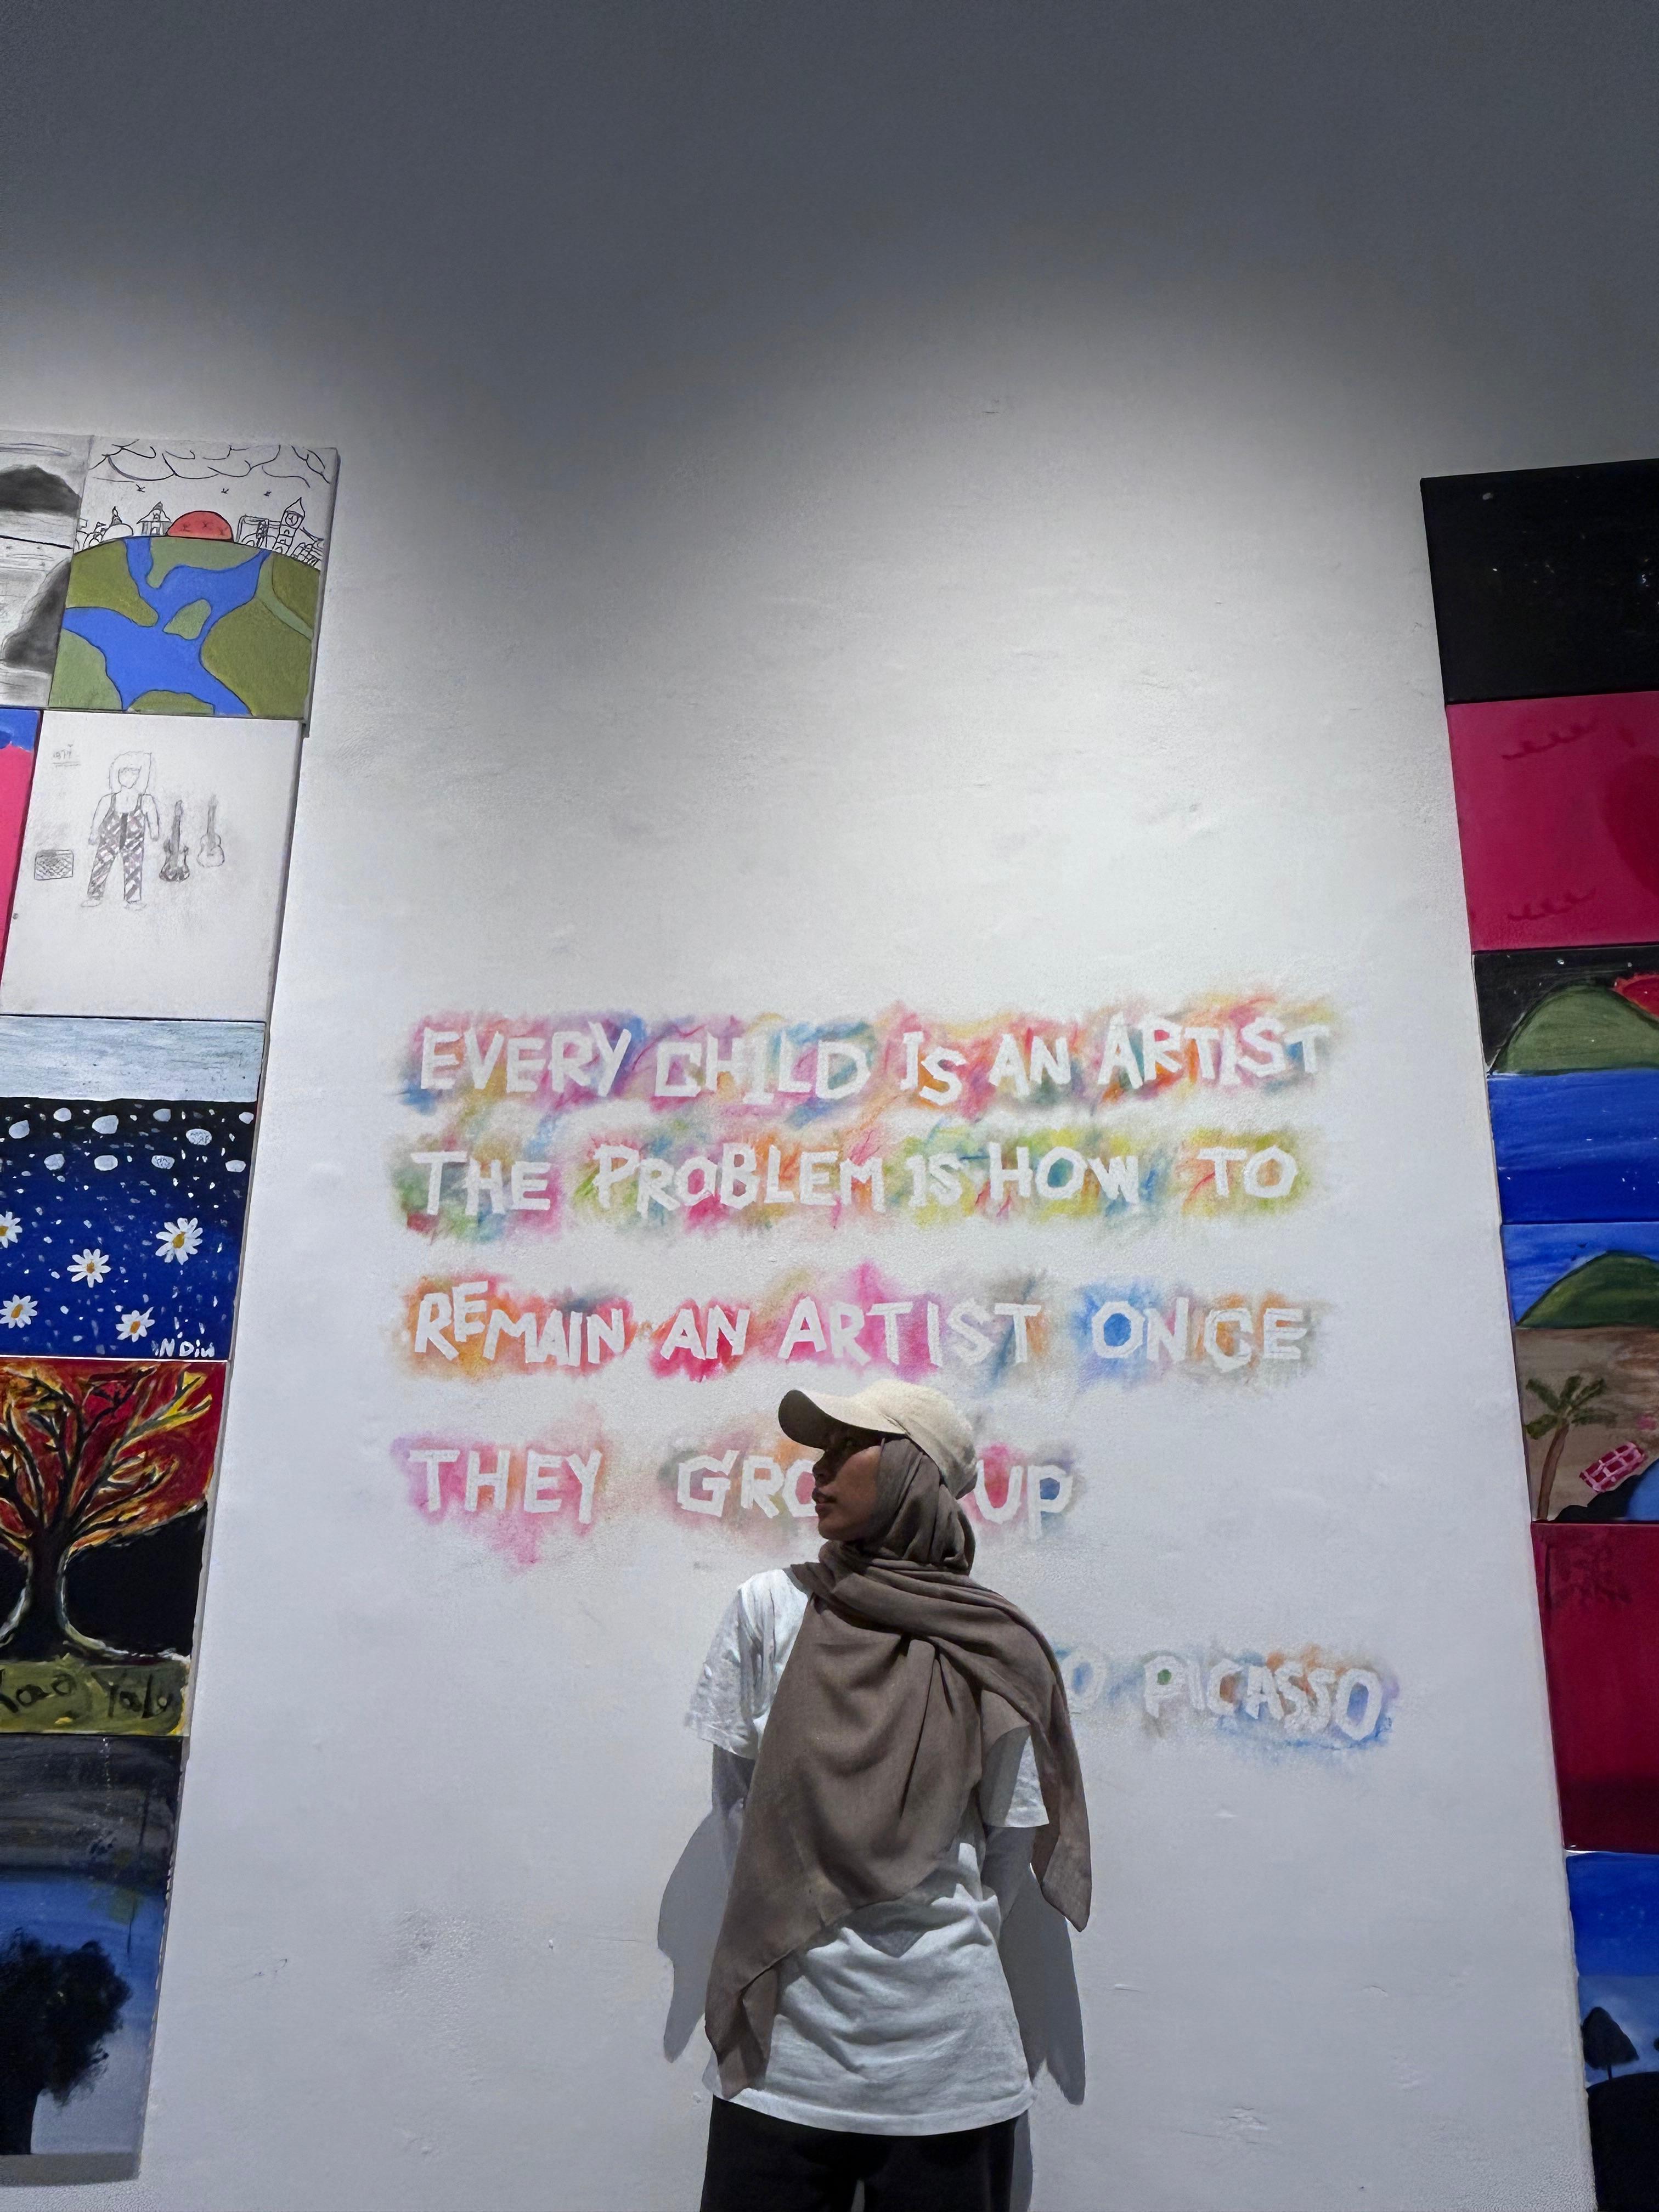 EVERY CHILD IS AN ARTIST
THE PROBLEM IS HOW TO
REMAIN AN ARTIST ONCE
THEY GRO UP
O PICASSO